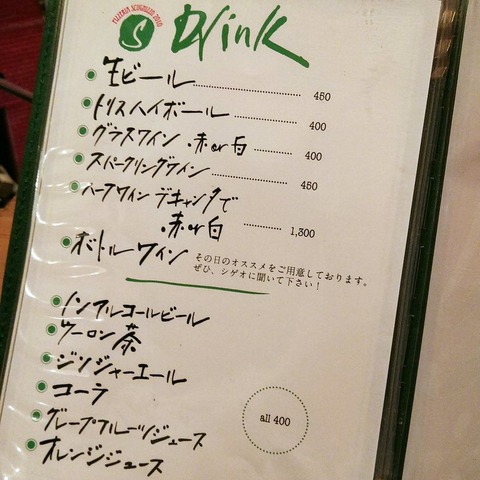 Drink
生ビール 450
トリスハイボール 400
グラスワイン 赤or白 400
スパークリングワイン 450
ハーフワイン デキャンタで
赤or白 1,300
ボトルワイン その日のオススメをご用意しております。
ぜひ、シゲオに聞いて下さい！
ノンアルコールビール
ウーロン茶
ジンジャーエール
コーラ
グレープフルーツジュース
オレンジジュース
all 400